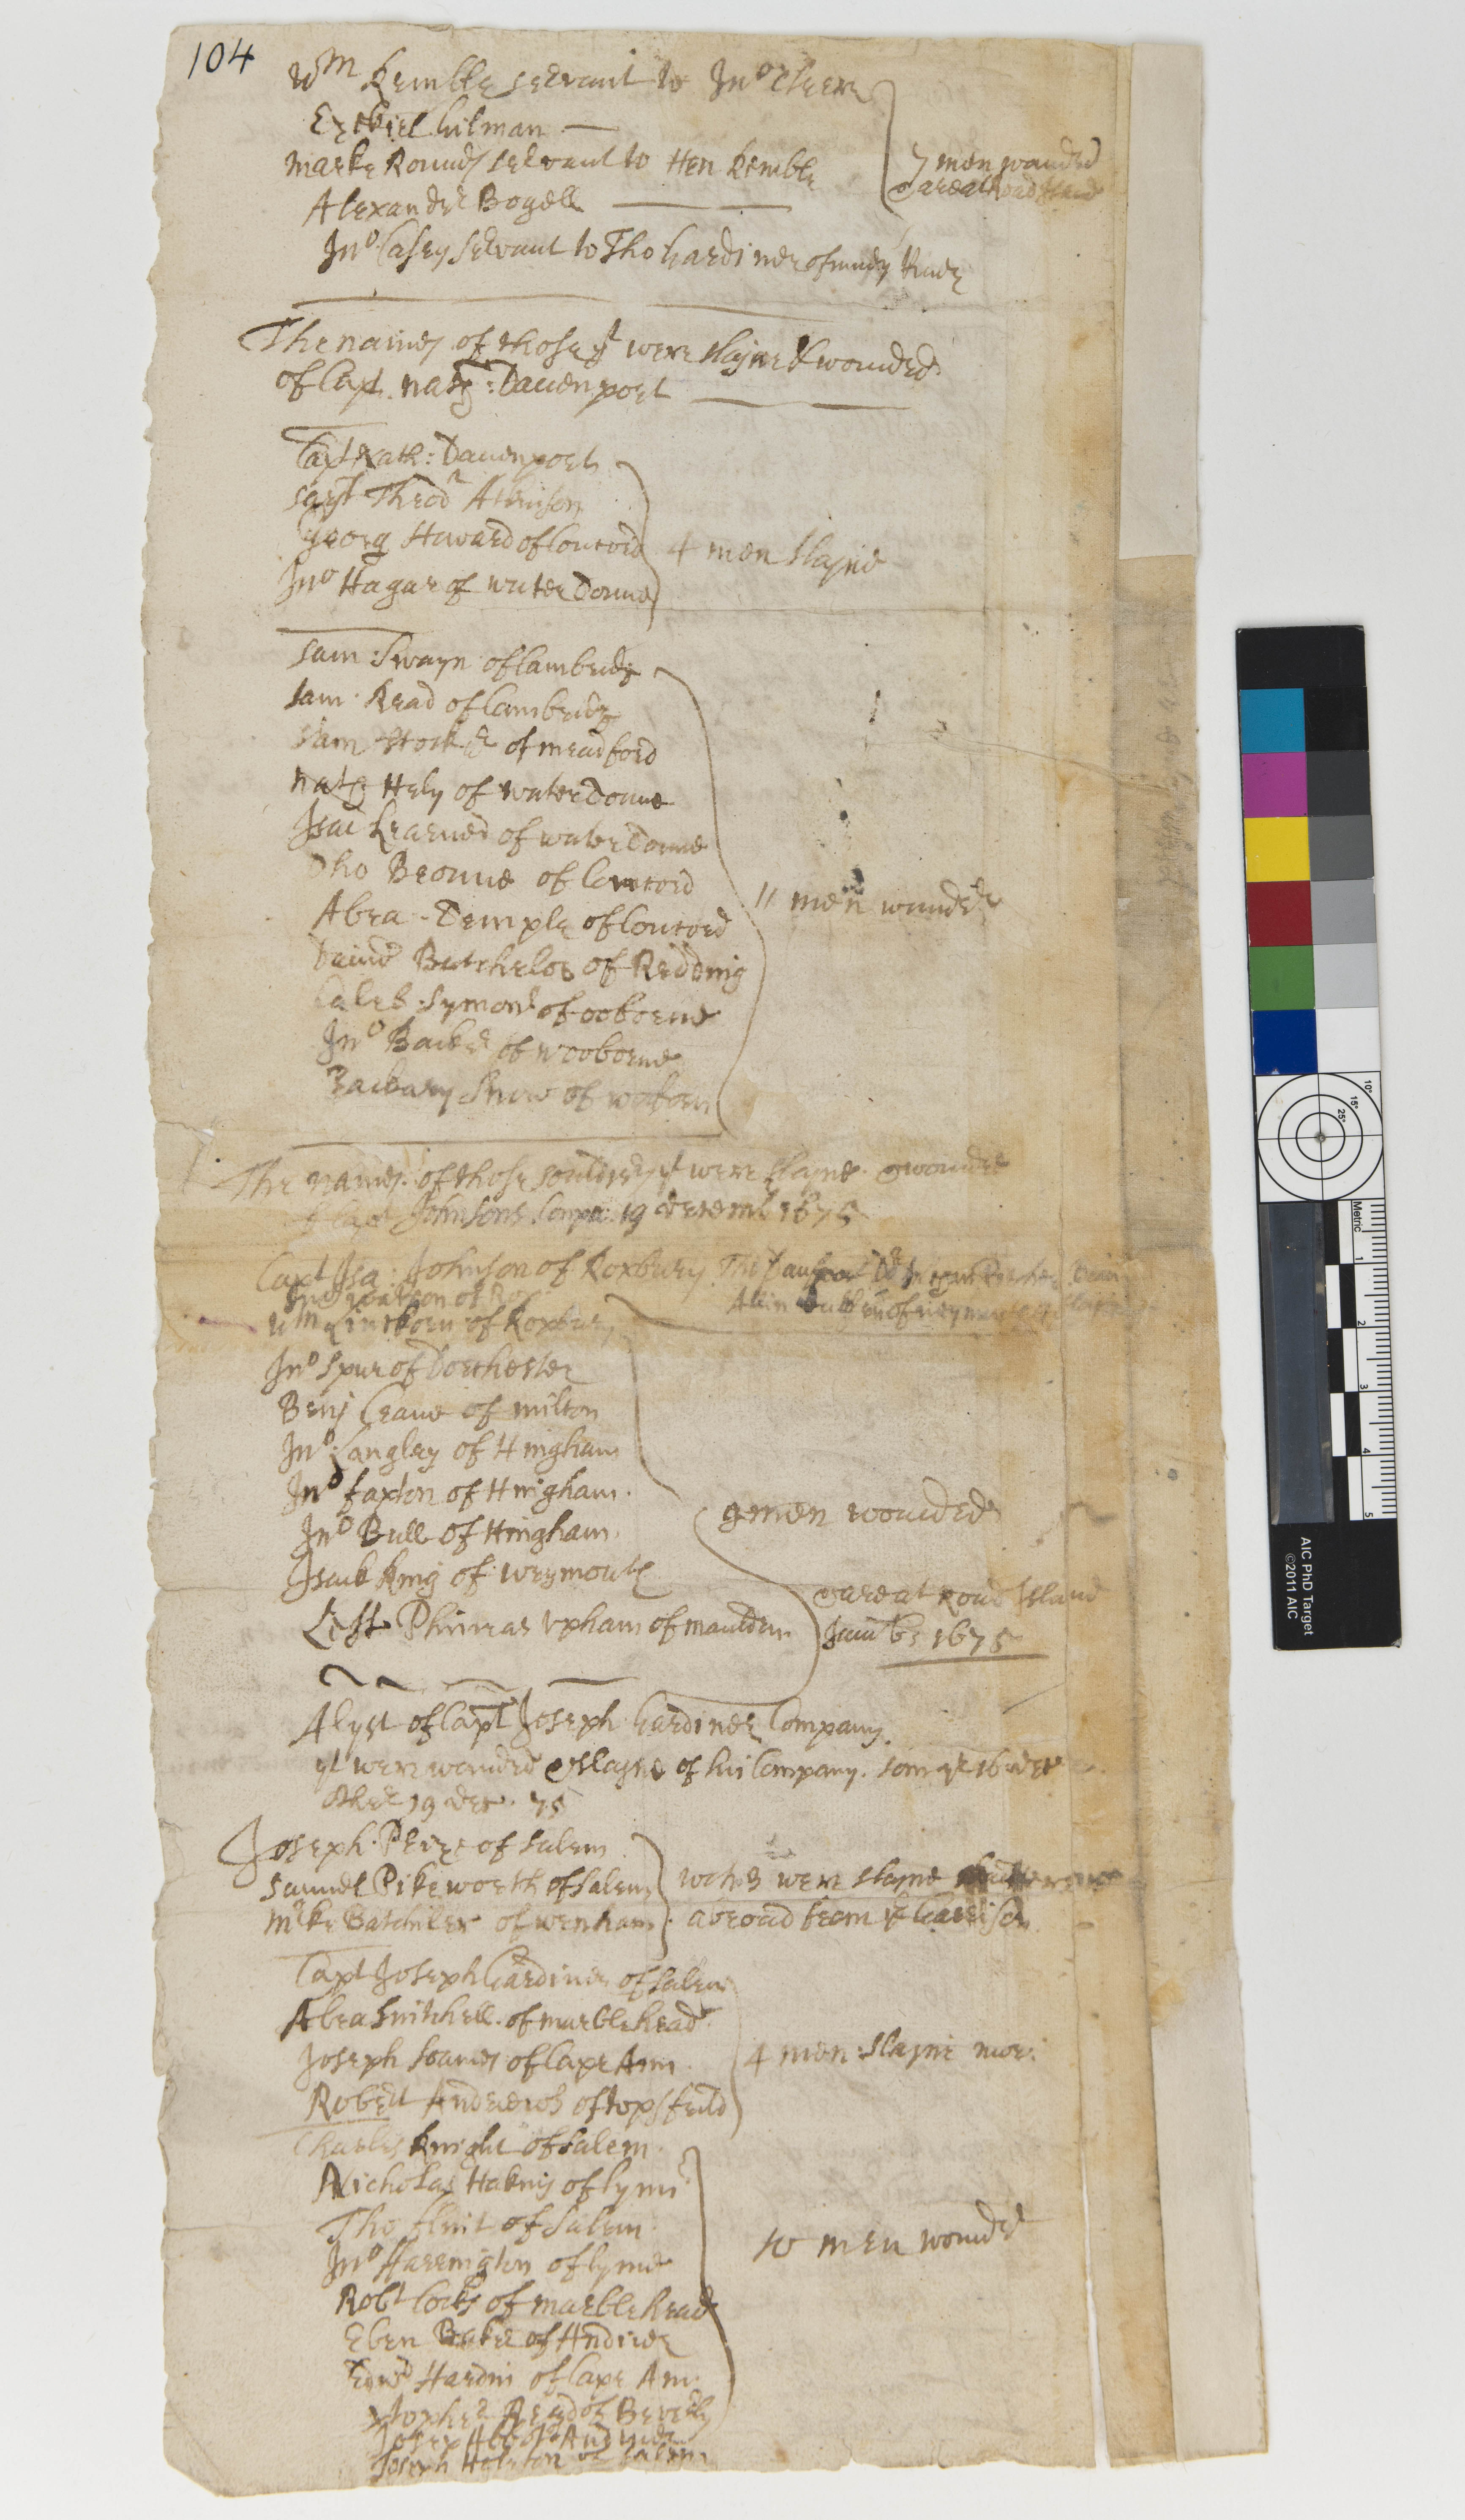 104
Wm Kemble servant to Jno Cleere
Ezekiel Gilman
Marke Rounds servant to Hen Kemble
Alexander Bogell
7 men wounded
& are at Road Iland
Jno Casey servant to Tho Gardiner of mudy River
The names of those yt were slayne & wounded
of Capt Nath: Dauenport
Capt Nath: Dauenport
sarjt Theodr Atkinson
Georg Howard of Concord
Jno Hagar of waterdowne
4 men slayne
Sam: Swayn of Cambridg
Sam: Read of Cambridg
Sam Stocker of meadford
nath Hely of waterdowne
Isac Learned of waterdowne
Tho Browne of Concord
Abra: Temple of Concord
Dauid Batchelor of Redding
Caleb Symons of ooborne
Jno Backer of wooborne
Zackary Snow of
11 men wounded
The names of those souldiers yt were slayne & wounded
of Capt Johnsons Compa: 19 decemb 1675
Capt Isa: Johnson of Roxbury
Jno Watson of Rox
Allin of
Wm Linckorn of Roxbury
Jno Spur of Dorchester
Benj Crane of milton
Jno Langley of Hingham
Jno faxton of Hingham
Jno Bull of Hingham
Isack King of weymouth
Left Phineas Upham of maulden
9 men wounded
& are at Road Island
Janu 6: 1675
A lyst of Capt Joseph Gardiner Company
yt were wounded & slayne of his Company. som ye 16 dec
other 19 dec. 75
Joseph Peirce of Salem
Samuel Pikeworth of Salem
Marke Batchiler of wenham
wch 3 were slayne
abroad from ye Garrison
Capt Joseph Gardiner of Salem
Abra Switchell of marblehead
Joseph Soames of Cape Ann
Robert Andrewes of topsfeild
4 men slayne more
Charles Knight of Salem
Nicholas Hakins of lynn
Tho flint of Salem
Jno Harrington of lynne
Robt Cocks of marblehead
Eben Baker of Andiver
Edwd Hardin of Cape Ann
Xtopher Read of Beverly
Joseph Abbot Andiver
Joseph Holeton of Salem
10 men wounded